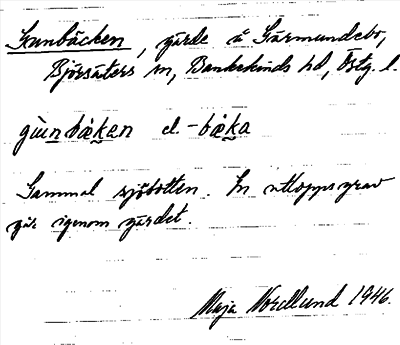 Gunbäcken, gärde å Gärmundebo,
Björsäters sn, Bankekinds hd, Östg. l.
gùnbäken el. -bäka
Gammal sjöbotten. En utloppsgrav
går igenom gärdet.
Maja Nordlund 1946.